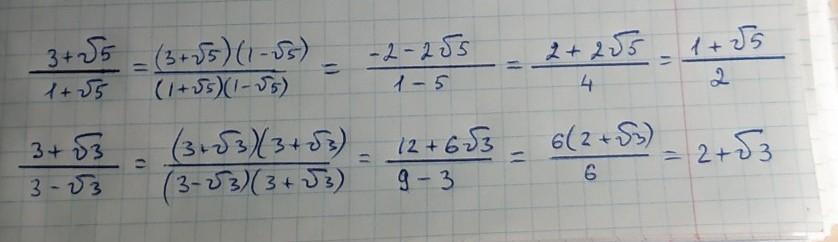 (3+√5)/(1+√5) = ((3+√5)(1-√5))/((1+√5)(1-√5)) = (-2-2√5)/(1-5) = (2+2√5)/4 = (1+√5)/2
(3+√3)/(3-√3) = ((3+√3)(3+√3))/((3-√3)(3+√3)) = (12+6√3)/(9-3) = (6(2+√3))/6 = 2+√3